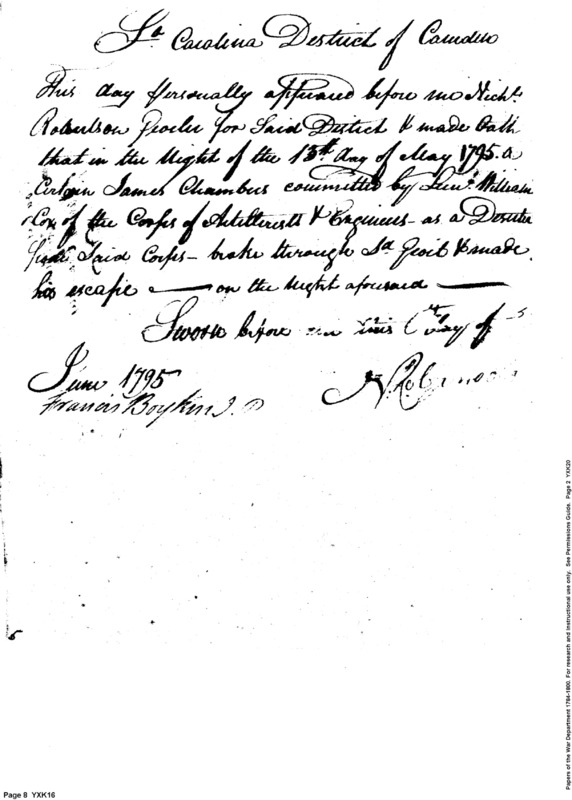 So Carolina District of Camden
This day Personally appeared before me Nichs
Robertson Goaler for Said District & made Oath
that in the Night of the 13th day of May 1795. a
Certain James Chambers committed by Lieut. William
Cox of the Corps of Artillerists & Engineers - as a Deserter
from Said Corps - broke through Sd Goal & made
his escape — on the Night aforesaid —
Sworn before me this 6th day of
June 1795
N Robertson
Francis Boykin J. P
Page 8 YXK16
Papers of the War Department 1784-1800. For research and instructional use only. See Permissions Guide. Page 2 YXK20